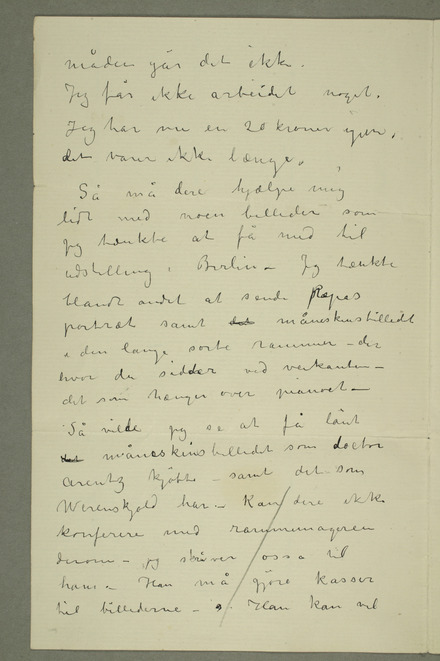 måden går det ikke.
Jeg får ikke arbeidet noget.
Jeg har nu en 20 kroner igjen,
det varer ikke længe.
Så må dere hjælpe mig
lidt med noen billeder som
jeg tænkte at få med til
udstilling i Berlin – Jeg tænkte
blandt andet at sende Papas
portræt samt det måneskinsbilledet
i den lange sorte rammen – der
hvor du sidder ved verkanten –
det som hænger over pianoet –
Så vilde jeg se at få lånt
det måneskinsbilledet som doctor
Arentz kjøbte – samt det som
Werenskjold har – Kan dere ikke
konferere med rammemageren
derom – jeg skriver ossa til
ham – Han må gjøre kasser
til billederne – Han kan vel